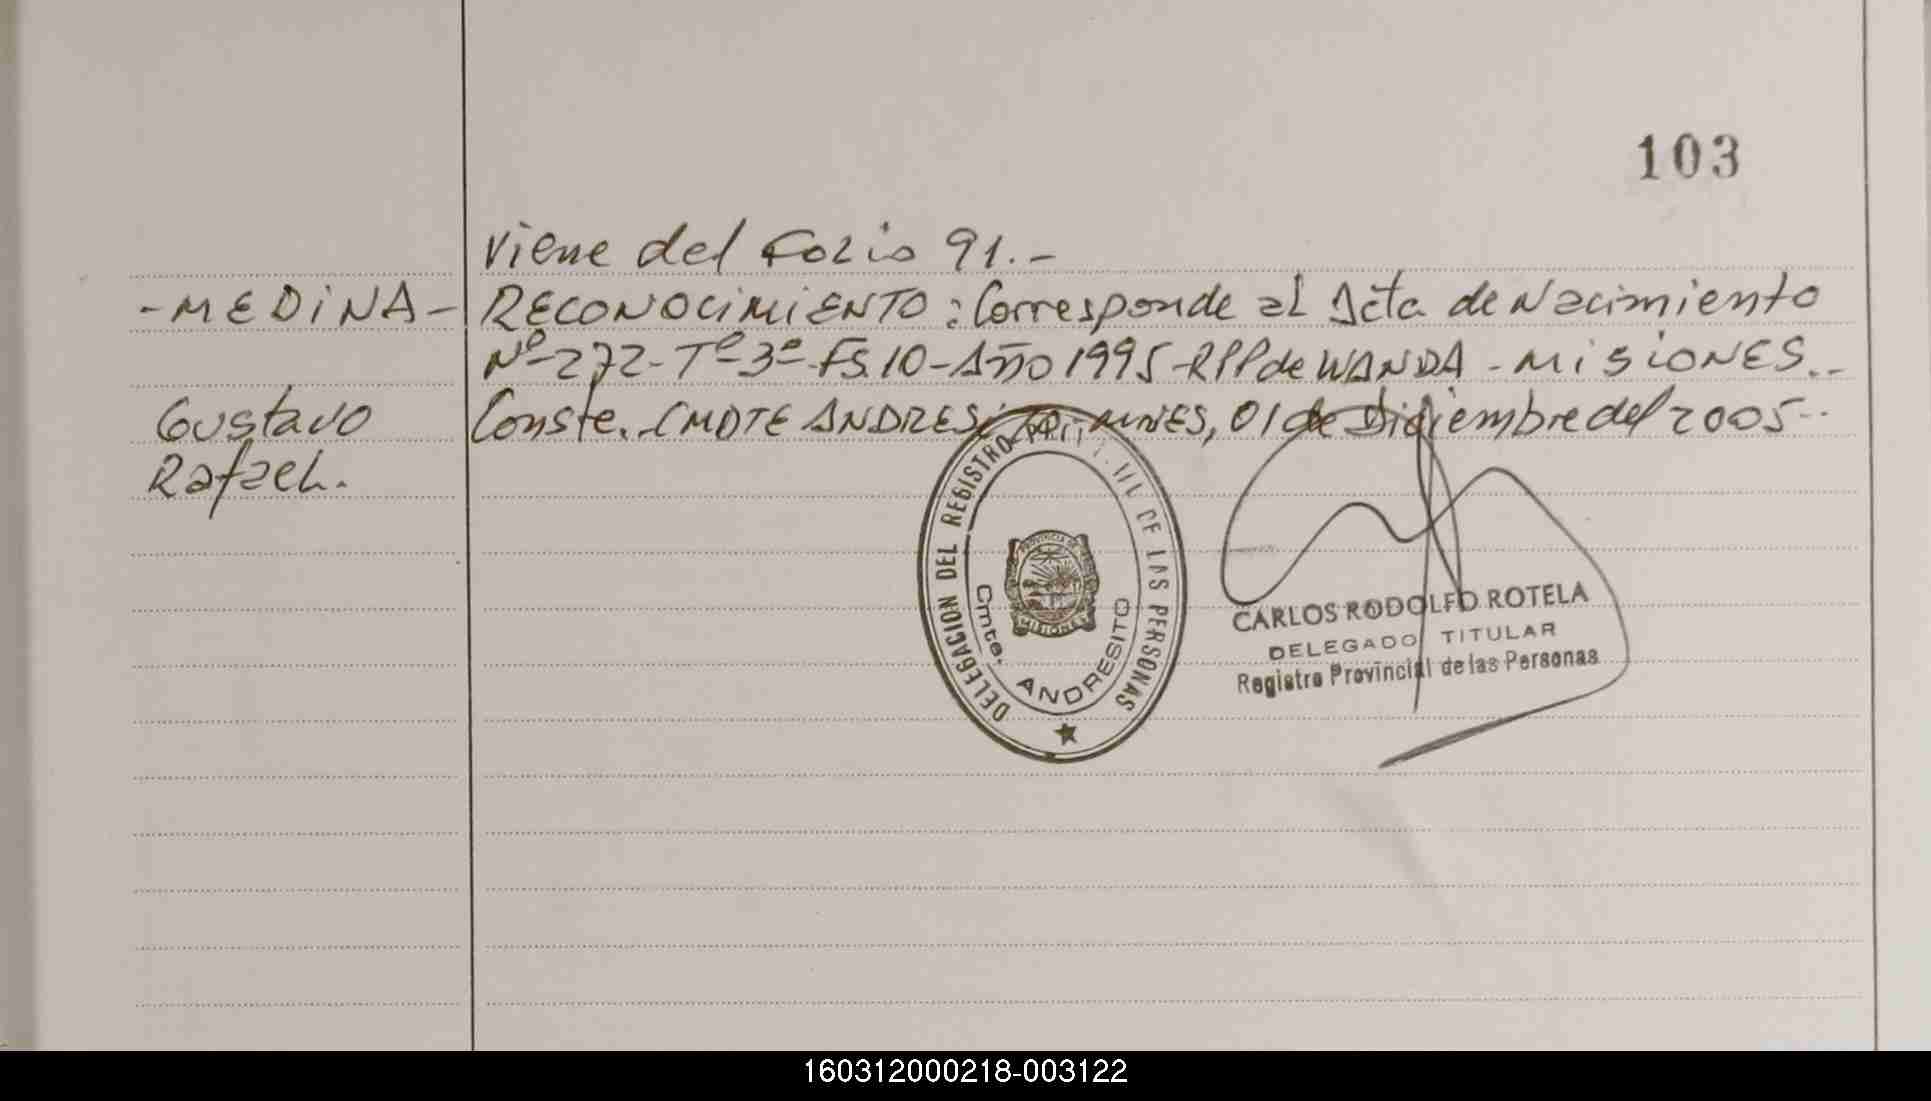 103
Viene del Folio 91.-
-MEDINA- RECONOCIMIENTO: Corresponde al Acta de Nacimiento
Nº-272-Tº-3º-Fs.10-Año 1995-RPP de WANDA - MISIONES.-
Gustavo Conste. CMDTE ANDRESITO, 01 de Diciembre del 2005.-
Rafael.
DELEGACION DEL REGISTRO DE LAS PERSONAS
PROVINCIA DE
MISIONES
Cmte. ANDRESITO
CARLOS RODOLFO ROTELA
DELEGADO TITULAR
Registro Provincial de las Personas
160312000218-003122